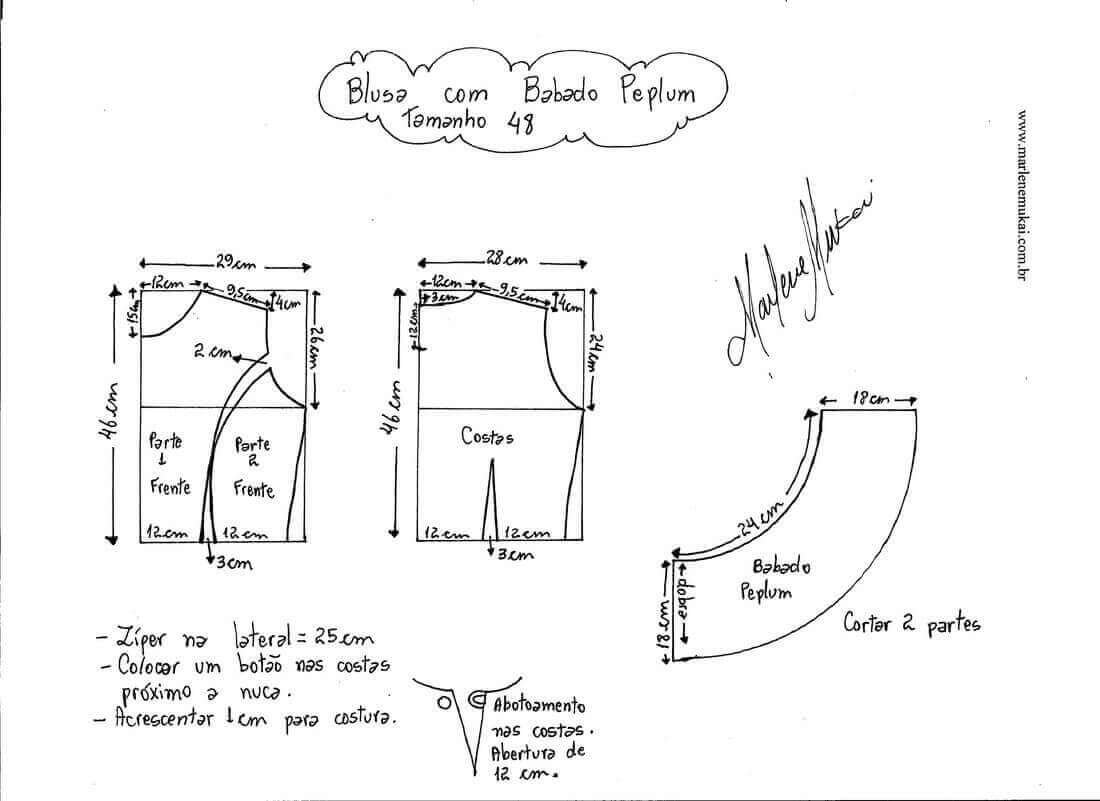 Blusa com Babado Peplum
Tamanho 48
www.marlenemukai.com.br
Marlene Mukai
29cm
12cm
9,5cm
4cm
15cm
26cm
2cm
46cm
Parte
1
Frente
Parte
2
Frente
12cm
12cm
3cm
28cm
12cm
3cm
9,5cm
4cm
12cm
24cm
46cm
Costas
12cm
12cm
3cm
18cm
24cm
Babado
Peplum
18cm
dobra
Cortar 2 partes
- Zíper na lateral = 25cm
- Colocar um botão nas costas
próximo a nuca.
- Acrescentar 1cm para costura.
Abotoamento
nas costas.
Abertura de
12 cm.